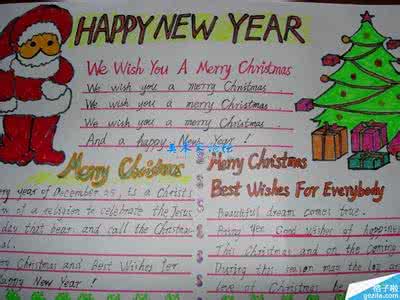 HAPPY NEW YEAR
We Wish You A Merry Christmas
We wish you a merry Christmas
We wish you a merry Christmas
We wish you a merry Christmas
And a happy New Year !
Merry Christmas
ry year of December 25, Is a Christ
of a religion to celebrate the Jesus,
day that bear and call the Christmas
Christmas and Best Wishes for
Happy New Year !
Merry Christmas
Best Wishes For Everybody
Beautiful dream comes true.
Bring you Good wishes of happiness
This Christmas and on the coming
During this season may the
love of Christmas be
格子啦
gezila.com